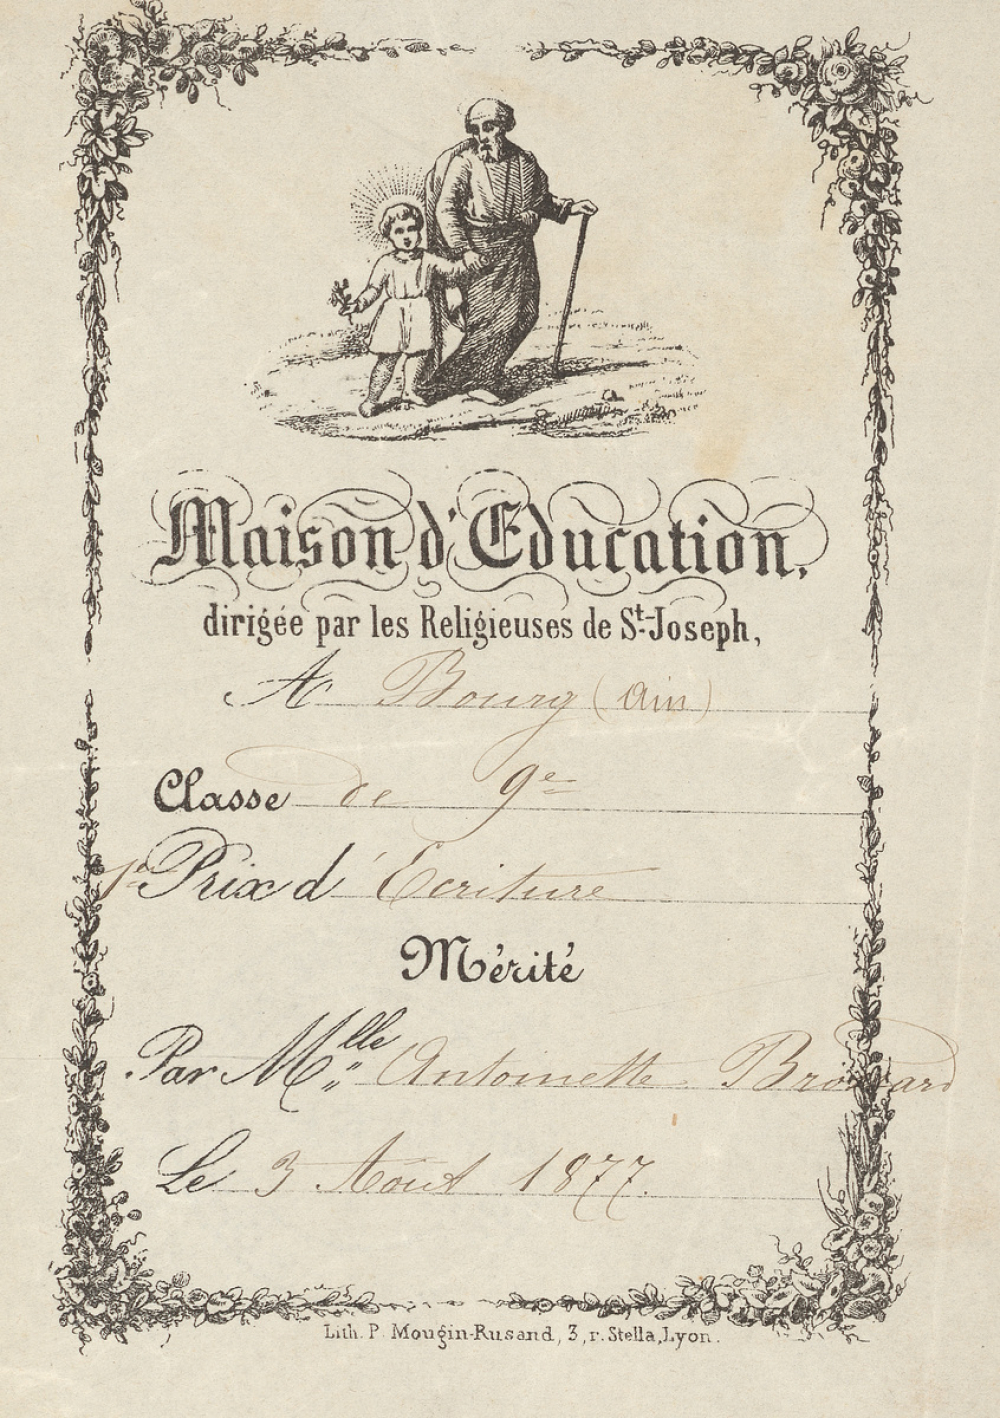 Maison d'Education,
dirigée par les Religieuses de St-Joseph,
A Bourg (Ain)
Classe de 9e
1er Prix d'Ecriture
Mérité
Par Mlle Antoinette
Le 3 Août 1877.
Lith. P. Mougin-Rusand, 3, r. Stella, Lyon.